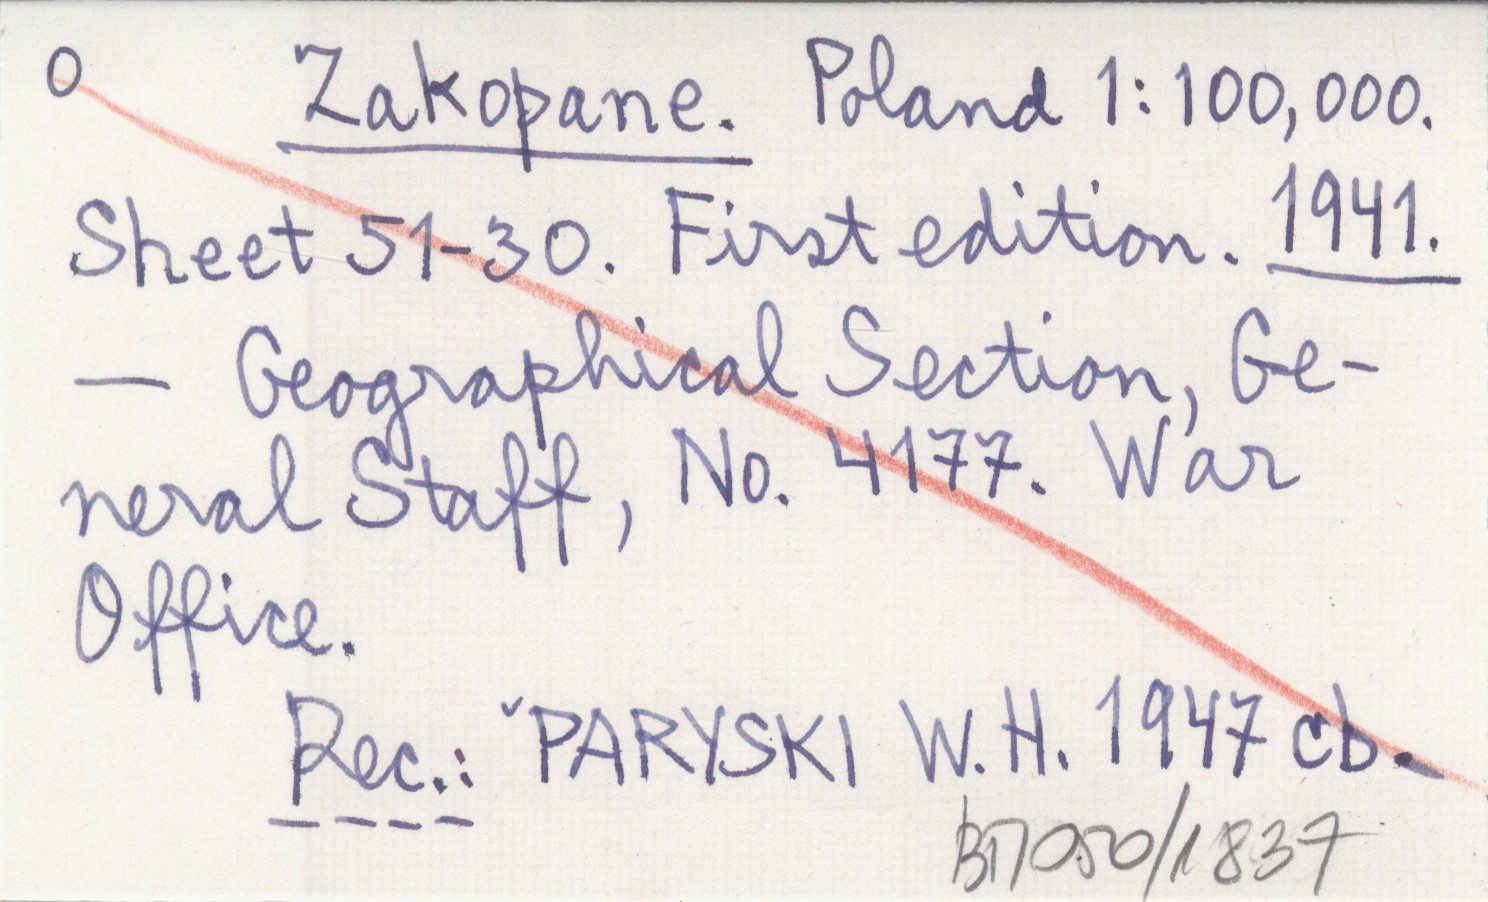 O Zakopane. Poland 1:100,000.
Sheet 51-30. First edition. 1941.
— Geographical Section, Ge-
neral Staff, No. 4177. War
Office.
Rec.: ˇPARYSKI W.H. 1947 cb.